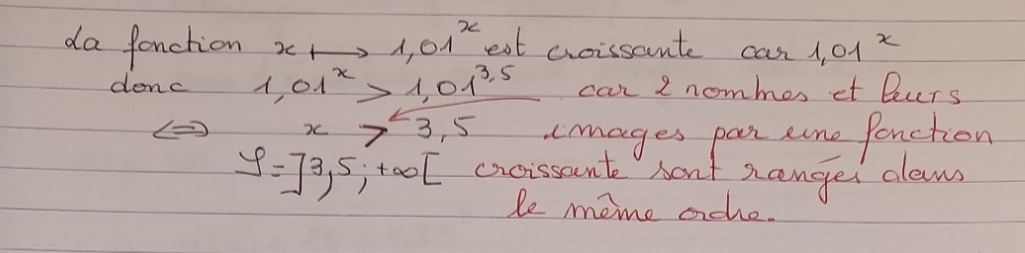 La fonction x ↦ 1,01^x est croissante car 1,01^x
donc 1,01^x > 1,01^3,5 car 2 nombres et leurs
⇔ x > 3,5 images par une fonction
S = ]3,5 ; +∞[ croissante sont rangés dans
le même ordre.